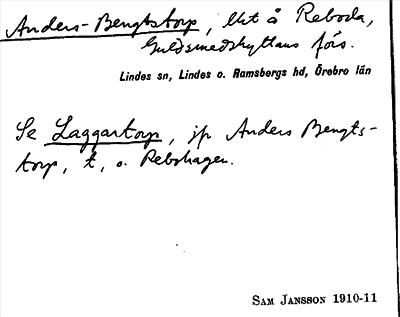 Anders-Bengtstorp, lht å Reboda,
Guldsmedshyttans förs.
Lindes sn, Lindes o. Ramsbergs hd, Örebro län
Se Laggartorp, jp Anders Bengts-
torp, t, o. Rebohagen.
SAM JANSSON 1910-11